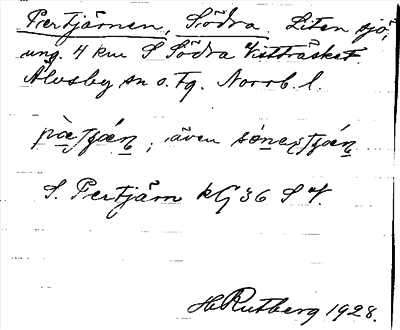 Pertjärnen, Södra. Liten sjö,
ung. 4 km S Södra Vistträsket
Älvsby sn o. tg. Norrb. l.
även
S. Pertjärn kG36 S
H Rutberg 1928.